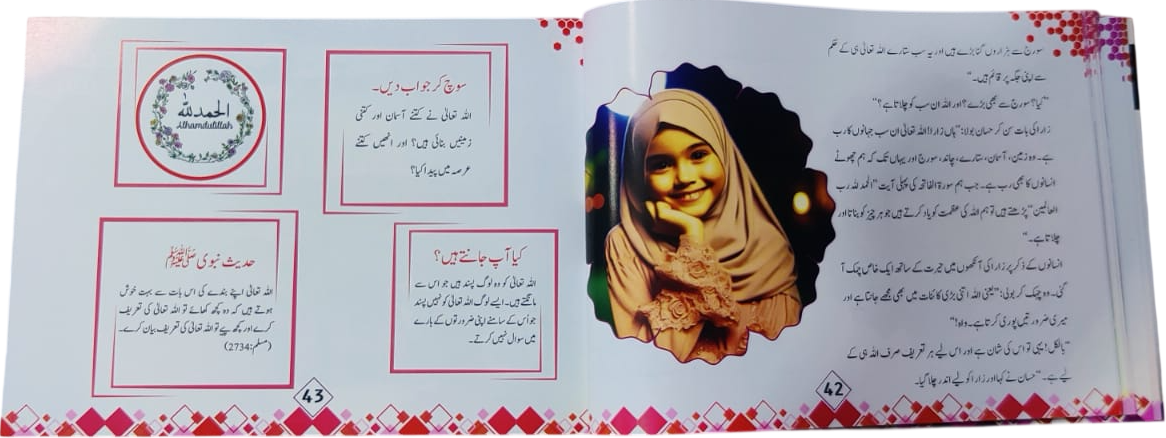 سورج سے ہزاروں گنا بڑے ہیں اور یہ سب ستارے اللہ تعالیٰ ہی کے حکم
سے اپنی جگہ پر قائم ہیں۔“
”کیا؟ سورج سے بھی بڑے؟ اور اللہ ان سب کو چلاتا ہے؟“
زارا کی بات سن کر حسان بولا: ”ہاں زارا! اللہ تعالیٰ ان سب جہانوں کا رب
ہے۔ وہ زمین، آسمان، ستارے، چاند، سورج اور یہاں تک کہ ہم چھوٹے
انسانوں کا بھی رب ہے۔ جب ہم سورۃ الفاتحہ کی پہلی آیت ”الحمد للہ رب
العالمین“ پڑھتے ہیں تو ہم اللہ کی عظمت کو یاد کرتے ہیں جو ہر چیز کو بناتا اور
چلاتا ہے۔“
انسانوں کے ذکر پر زارا کی آنکھوں میں حیرت کے ساتھ ایک خاص چمک آ
گئی۔ وہ چہک کر بولی: ”یعنی اللہ اتنی بڑی کائنات میں بھی مجھے جانتا ہے اور
میری ضرورتیں پوری کرتا ہے۔ واہ!“
”بالکل! یہی تو اس کی شان ہے اور اس لیے ہر تعریف صرف اللہ ہی کے
لیے ہے۔“ حسان نے کہا اور زارا کو لیے اندر چلا گیا۔
42
سوچ کر جواب دیں۔
اللہ تعالیٰ نے کتنے آسمان اور کتنی
زمینیں بنائی ہیں؟ اور انھیں کتنے
عرصہ میں پیدا کیا؟
الحمد للہ
Alhamdulillah
کیا آپ جانتے ہیں؟
اللہ تعالیٰ کو وہ لوگ پسند ہیں جو اس سے
مانگتے ہیں۔ ایسے لوگ اللہ تعالیٰ کو نہیں پسند
جو اُس کے سامنے اپنی ضرورتوں کے بارے
میں سوال نہیں کرتے۔
حدیث نبوی ﷺ
اللہ تعالیٰ اپنے بندے کی اس بات سے بہت خوش
ہوتے ہیں کہ وہ کچھ کھائے تو اللہ تعالیٰ کی تعریف
کرے اور کچھ پیے تو اللہ تعالیٰ کی تعریف بیان کرے۔
(مسلم:2734)
43